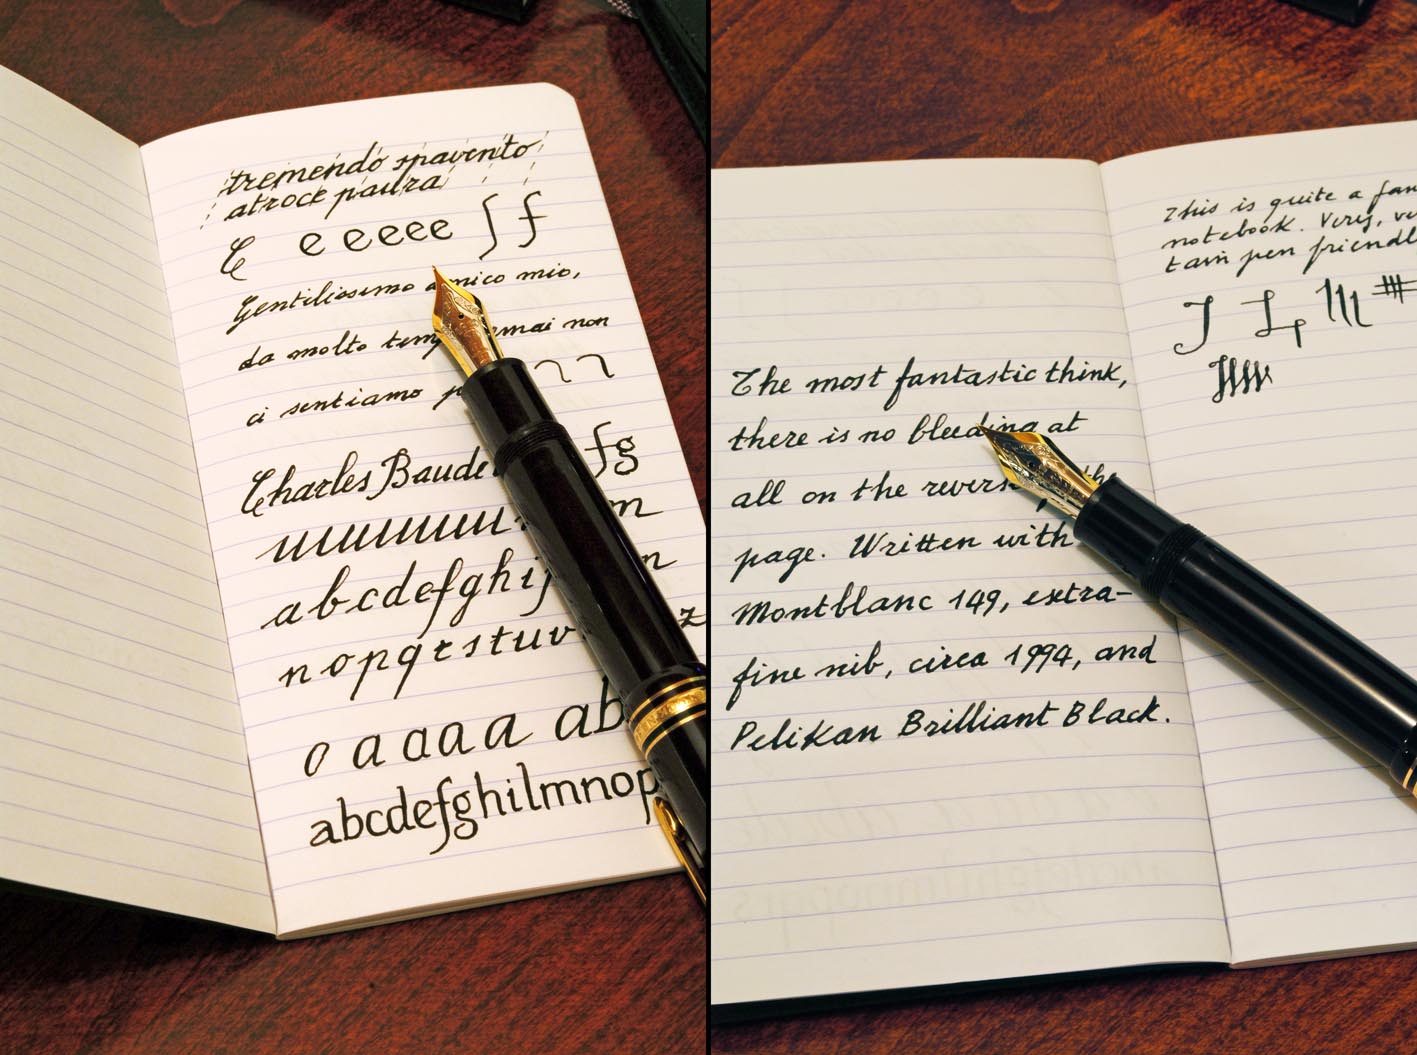 tremendo spavento
atroce paura
C e e e e e ſ f
Gentilissimo amico mio,
da molto ormai non
ci sentiamo
Charles Baude fg
uuuuuuuu m
abcdefghij n
nopqrstuv z
o a a a a ab
abcdefghilmnop
The most fantastic think,
there is no bleeding at
all on the reverse the
page. Written with
Montblanc 149, extra-
fine nib, circa 1994, and
Pelikan Brilliant Black.
This is quite a fan
notebook. Very, ve
tain pen friendl